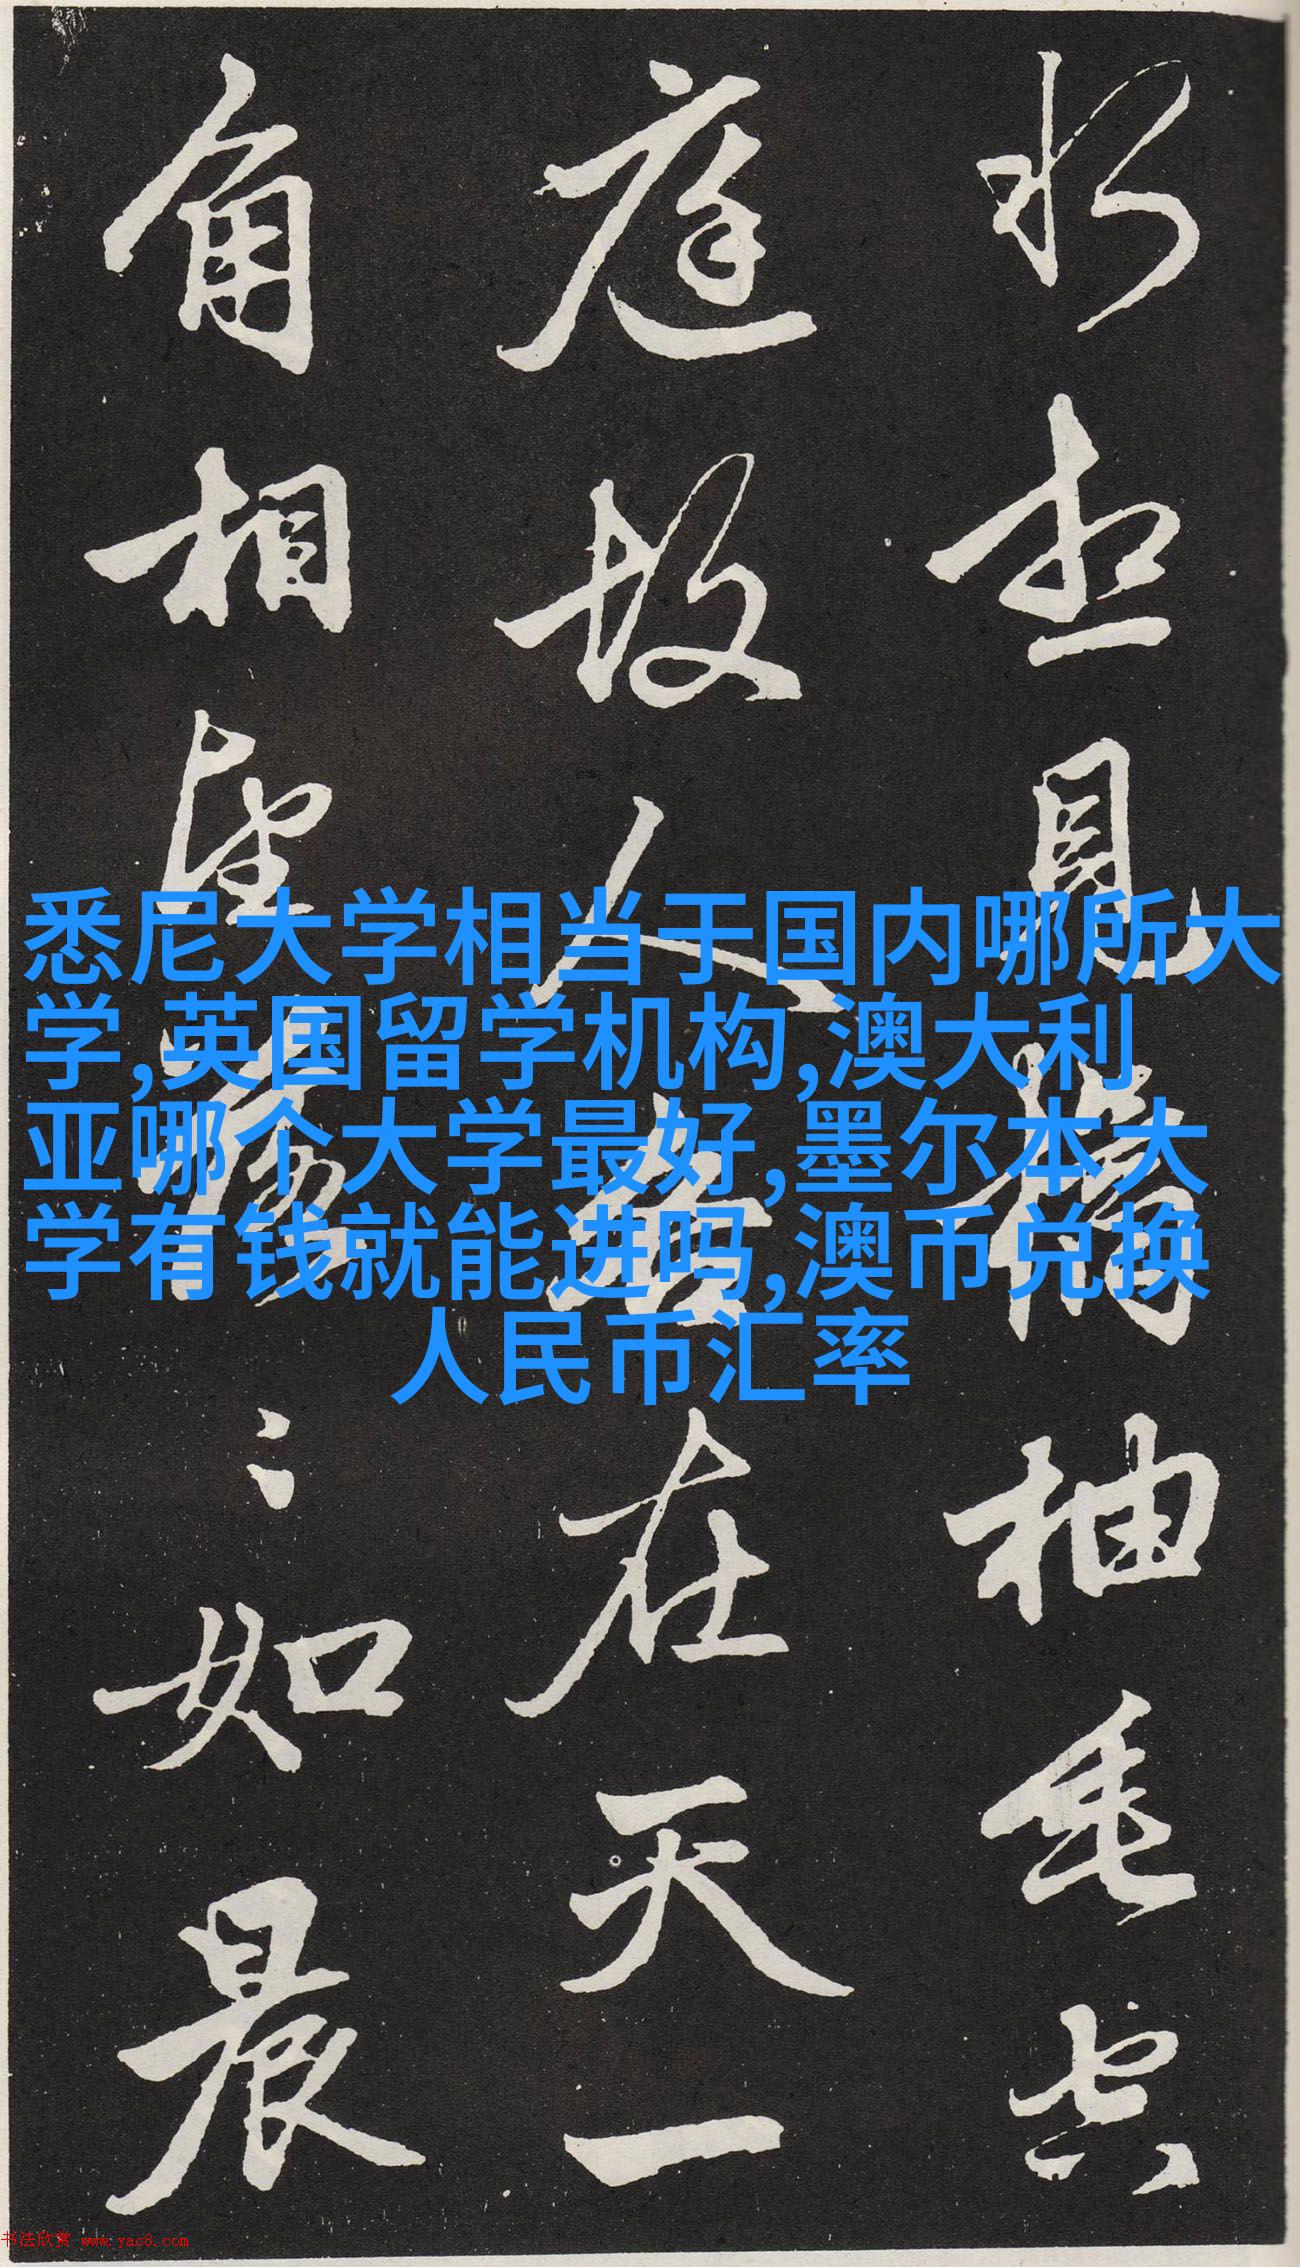 想見橘柚垂空
庭故人各在天一
角相望落々如晨
悉尼大学相当于国内哪所大
学,英国留学机构,澳大利
亚哪个大学最好,墨尔本大
学有钱就能进吗,澳币兑换
人民币汇率
书法欣赏 www.yac8.com